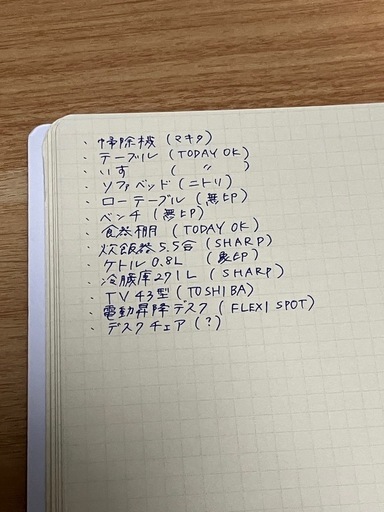 ・掃除機（マキタ）
・テーブル（TODAY OK）
・いす （ 〃 ）
・ソファベッド（ニトリ）
・ローテーブル（無印）
・ベンチ（無印）
・食器棚（TODAY OK）
・炊飯器5.5合（SHARP）
・ケトル0.8L （無印）
・冷蔵庫271L（SHARP）
・TV 43型（TOSHIBA）
・電動昇降デスク（FLEXI SPOT）
・デスクチェア（?）